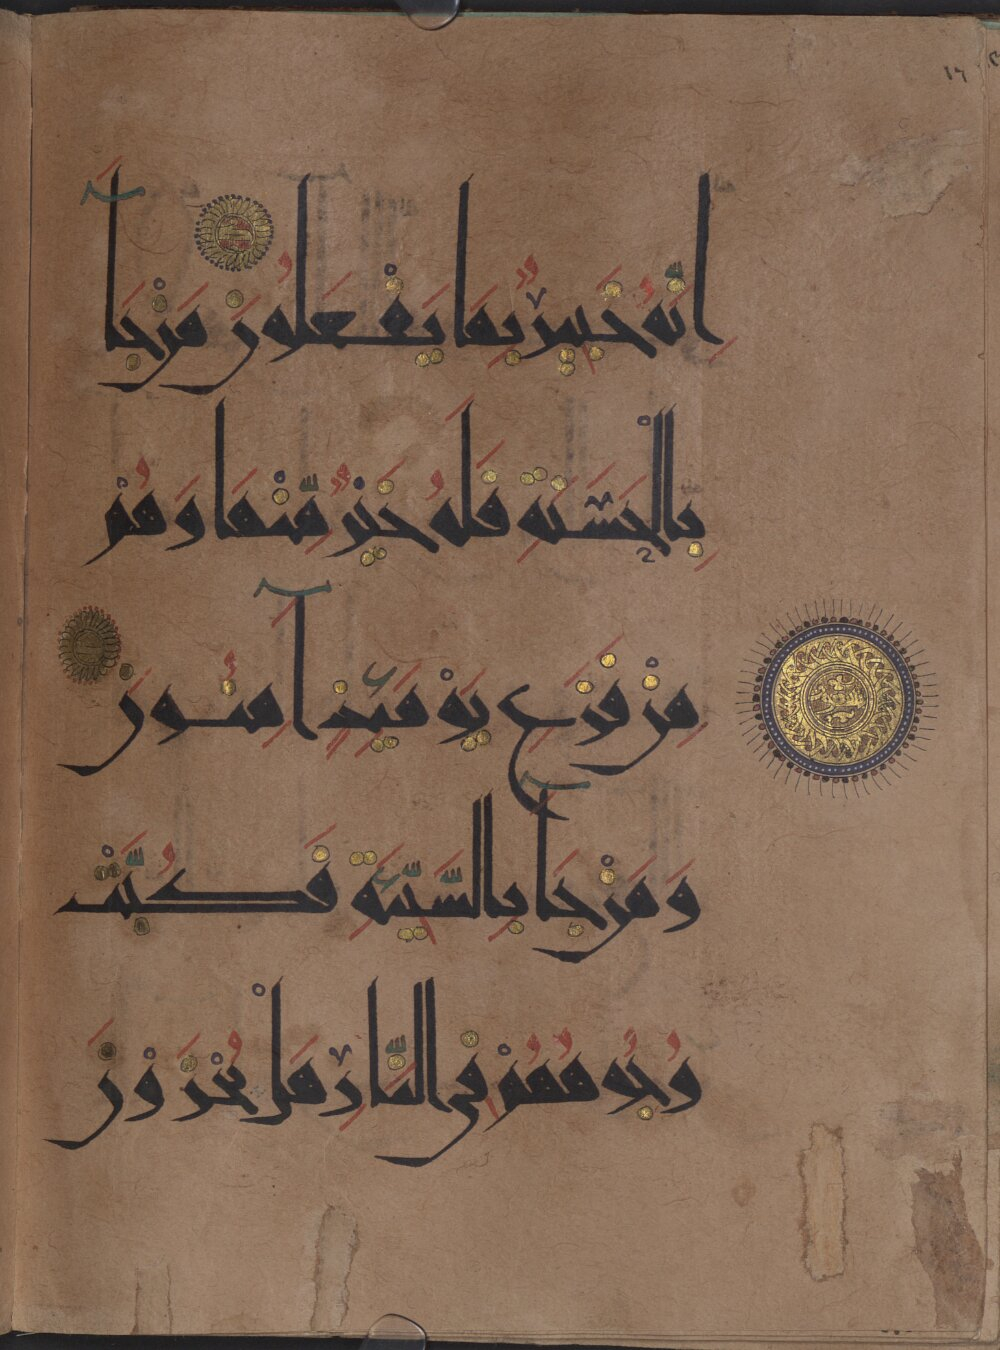 إِنَّهُ خَبِيرٌ بِمَا يَفْعَلُونَ مَنْ جَآ
بِالْحَسَنَةِ فَلَهُ خَيْرٌ مِّنْهَا وَهُمْ
مِنْ فَزَعٍ يَوْمَئِذٍ آمِنُونَ
وَمَنْ جَآ بِالسَّيِّئَةِ فَكُبَّتْ
وُجُوهُهُمْ فِي النَّارِ هَلْ تُجْزَوْنَ